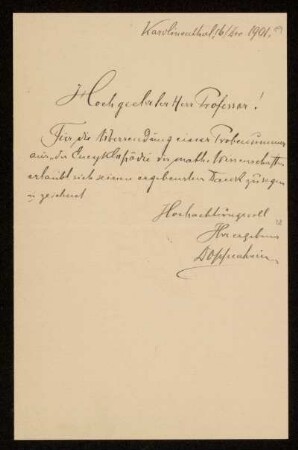 Karolinenthal, 16/XII 1901.
Hochgeehrter Herr Professor!
Für die Übersendung einer Probenummer
aus der Encyklopädie der math. Wissenschaften
erlaubt sich seinen ergebensten Dank zu sagen
u. zeichnet
Hochachtungsvoll
Ihr ergebener
SOppenheim